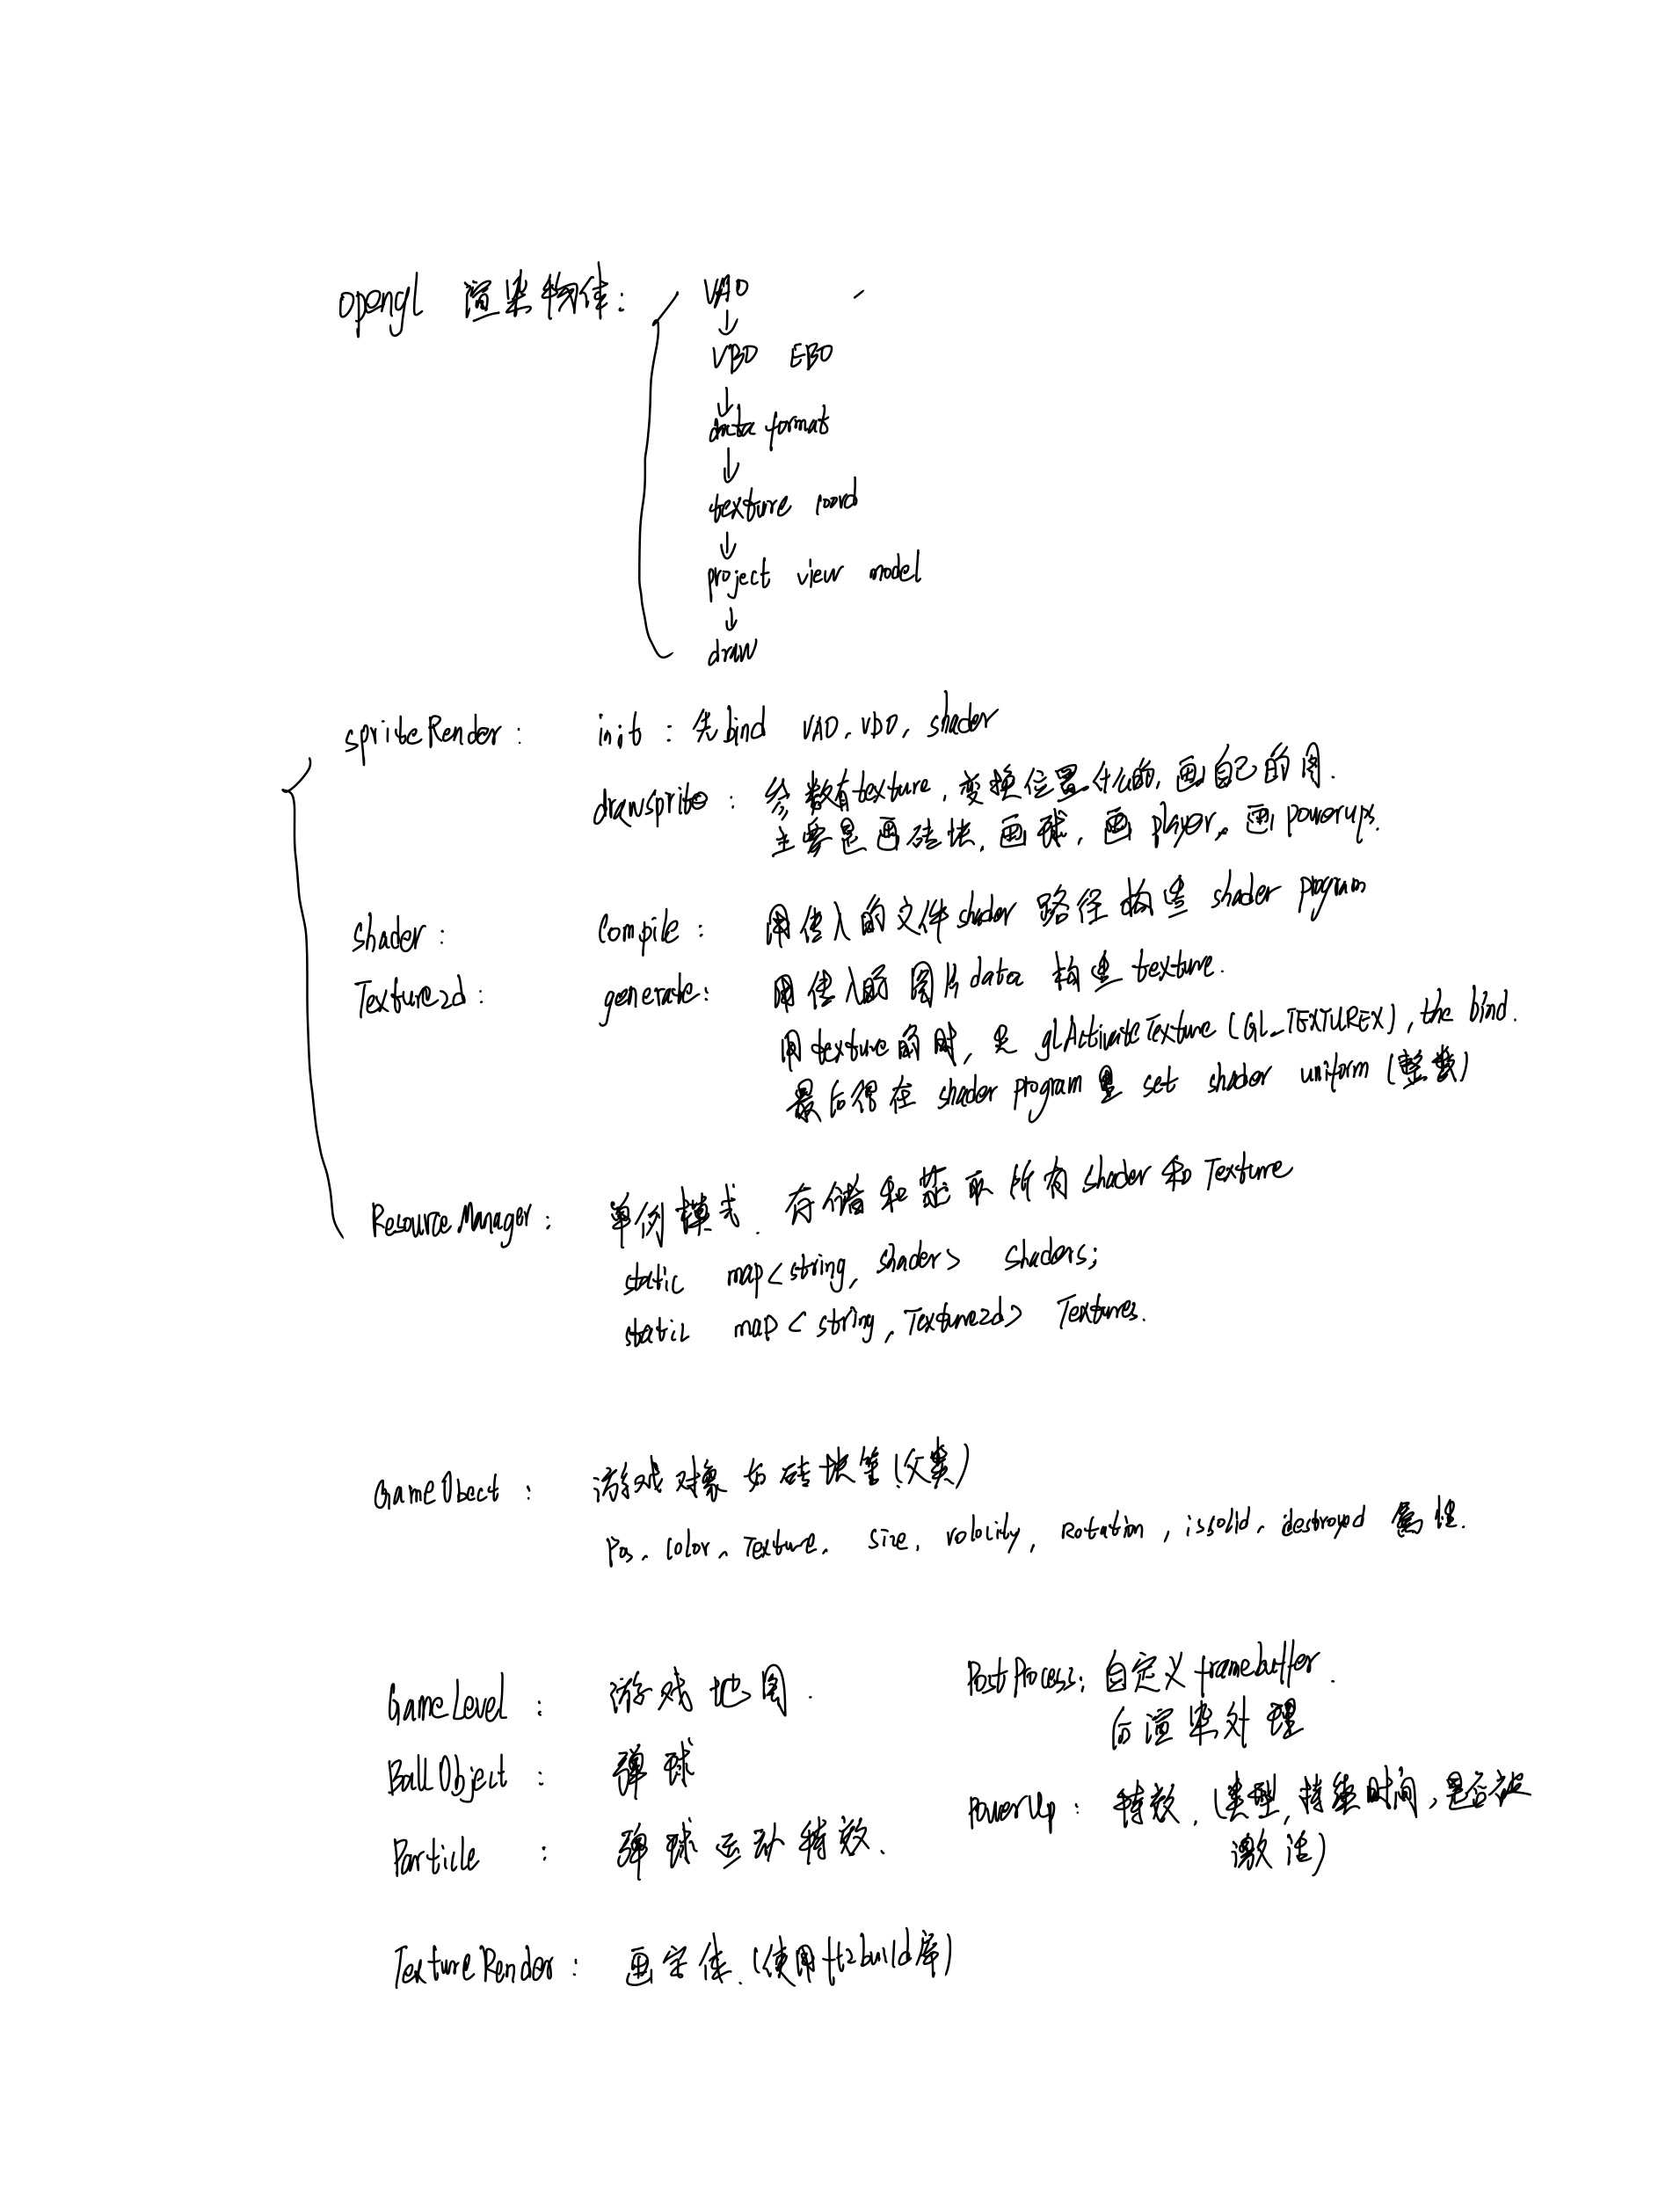 opengl 渲染物体:
VAO
↓
VBO EBO
↓
data format
↓
texture coord
↓
project view model
↓
draw
spriteRender: init: 先bind VAO, VBO, shader
drawsprite: 参数有texture, 变换位置什么的, 画自己的图.
主要是画砖块, 画球, 画player, 画powerups.
shader: Compile: 用传入的文件shader 路径构造 shader program
Texture2d: generate: 用传入的图片data 构造 texture.
用texture的时, 先 glActivateTexture(GL_TEXTUREX), the bind.
最后得在 shader program里 set shader uniform (整数)
ResourceManager: 单例模式. 存储和获取所有shader和Texture
static map<string, shader> shaders;
static map<string, Texture2d> Textures.
GameObect: 游戏对象如砖块等(父类)
Pos, color, Texture, size, volocity, Rotation, issolid, destroyed 属性.
GameLevel: 游戏地图.
BallObject: 弹球
Particle: 弹球运动特效.
PostProcess: 自定义framebuffer.
后渲染处理
PowerUp: 特效. (类型, 持续时间, 是否被
激活)
TextureRender: 画字体. (使用ft2build库)